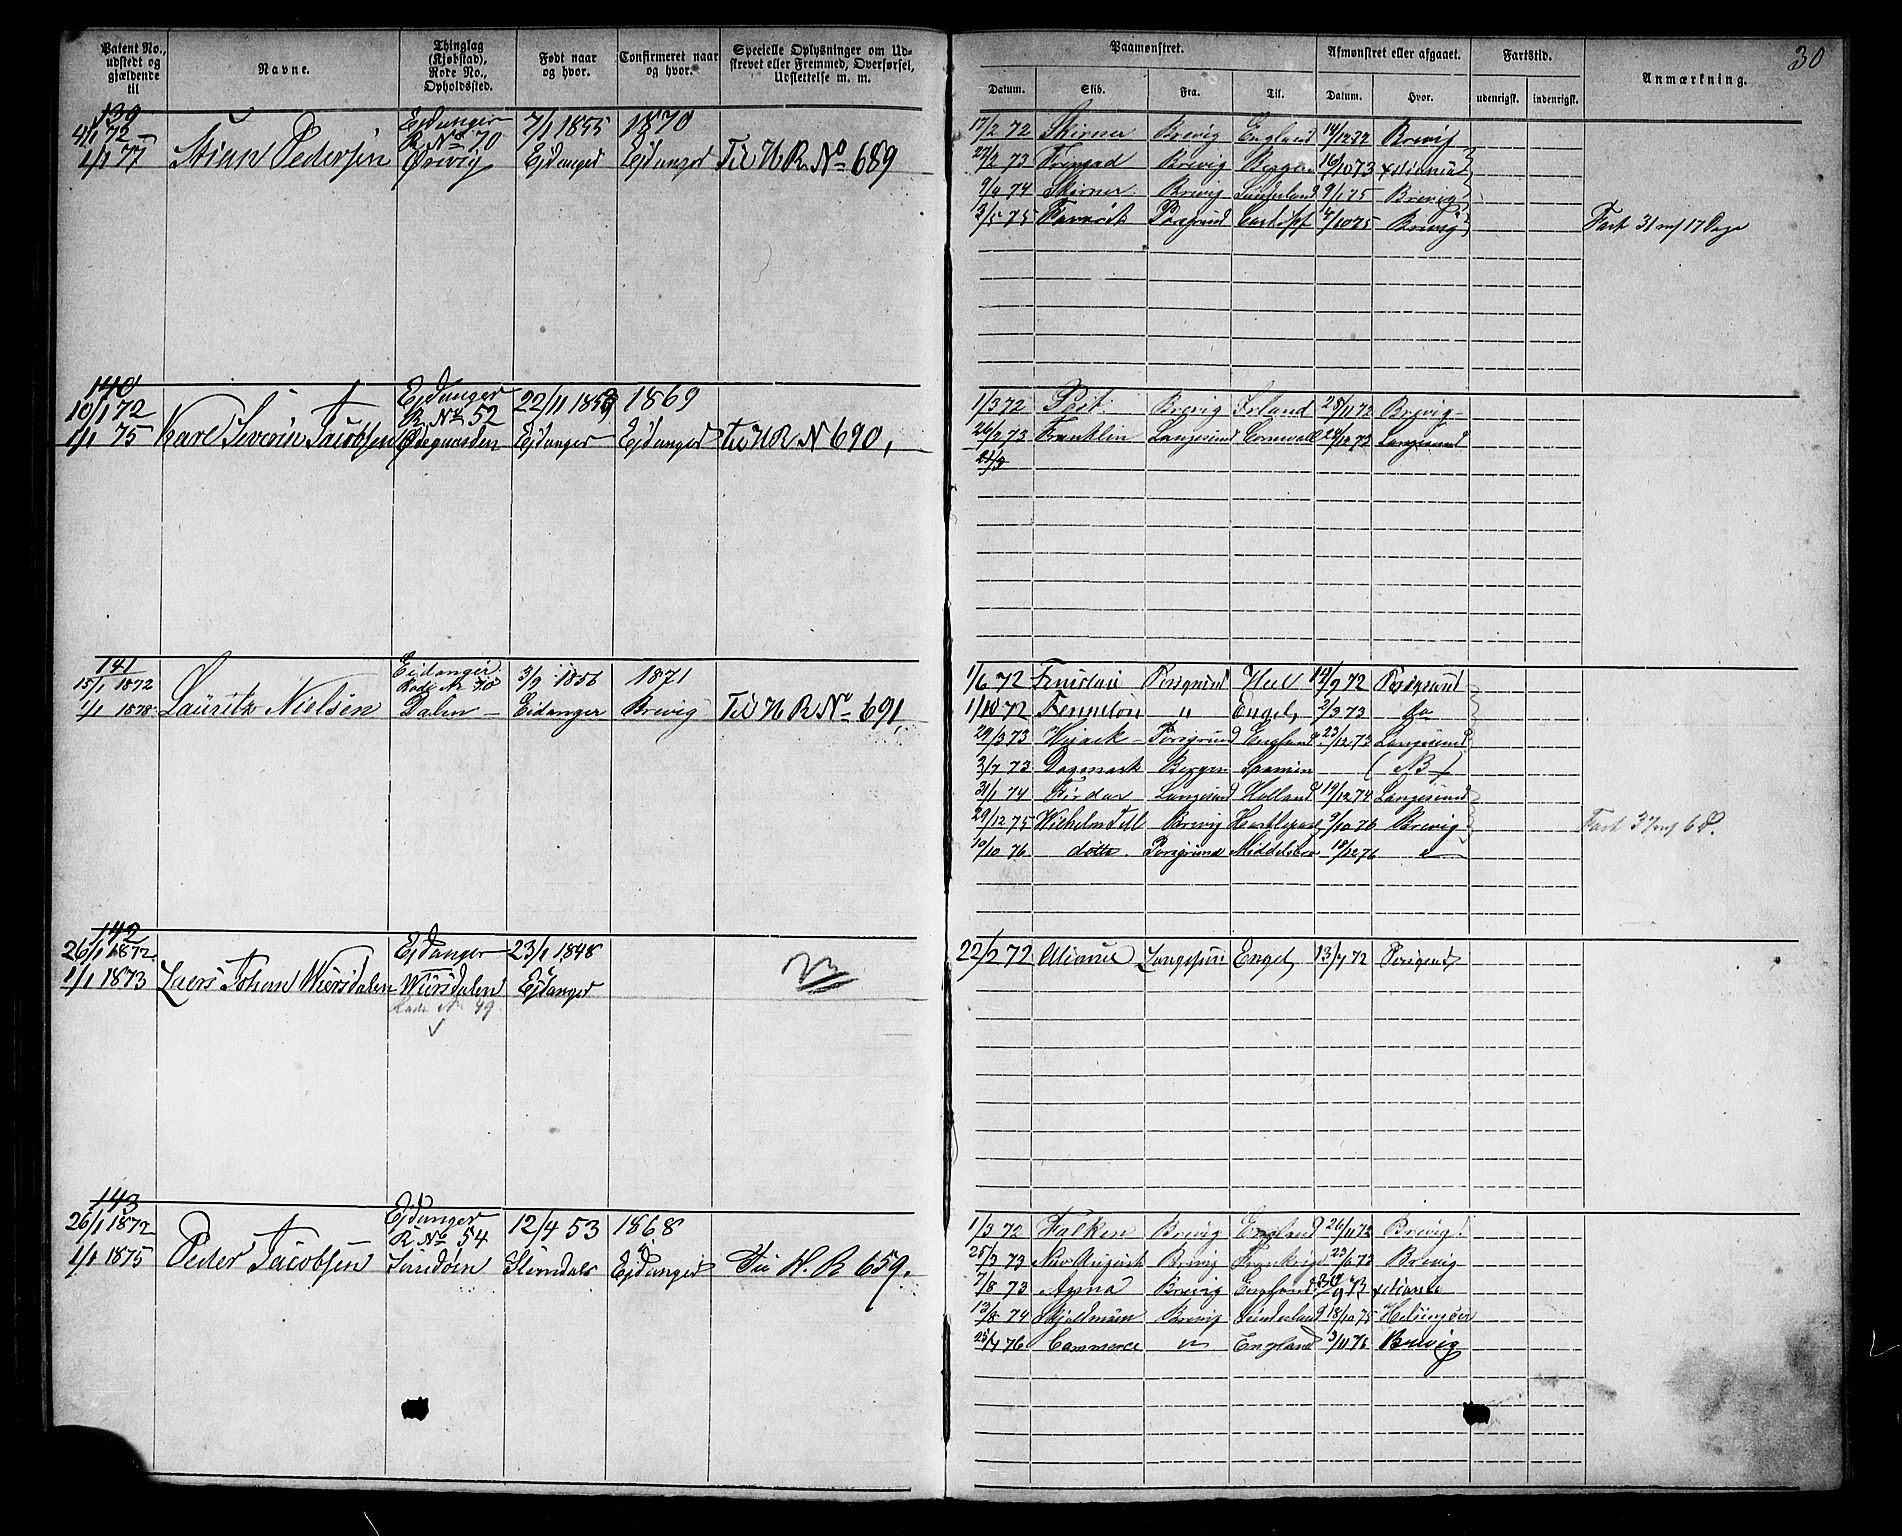 30
Patent No., udstedt og gjældende til
Navne.
Thinglag (Kjøbstad), Rode No., Opholdssted.
Født naar og hvor.
Confirmeret naar og hvor.
Specielle Oplysninger om Udskrevet eller Fremmed, Overførsel, Udslettelse m. m.
Paamønstret.
Afmønstret eller afgaaet.
Fartstid.
Anmærkning.
Datum. Skib. Fra. Til. Datum. Hvor. udenrigsk. indenrigsk.
139
4/1 72 Eidanger 7/1 1855 1870
R No 70
1/1 77 Pedersen Ørvig Ejdanger Ejdanger Til H R No 689
17/2 72 Skirner Brevig England 14/12 72 Brevig
27/2 73 Brevig Bergen 16/10 73
9/4 74 Skirner Brevig Sunderland 9/1 75 Brevig
3/5 75 Favorit Porsgrund Cardiff 4/10 75 Brevig
Fart 31 m 17 Dage
140
10/1 72 Ejdanger 22/11 1853 1869
R No 52
1/1 75 Karl Severin Jacobsen Ødegaarden Ejdanger Ejdanger til H R N 690,
1/3 72 Brevig Irland 28/11 72 Brevig
26/2 73 Franklin Langesund Cornwall 24/12 73 Langesund
21/3
141
15/1 1872 Eidanger 3/9 1856 1871
Rode Nr 70
1/1 1878 Lauritz Nielsen Dalen Eidanger Brevig Til H R No 691,
1/6 72 Porsgrund Hull 14/9 72 Porsgrund
1/10 72 " Engel, 2/3 73 do
29/3 73 Porsgrund England 23/12 73 Langesund
3/7 73 Bergen (NB)
31/1 74 Langesund Holland 19/12 74 Langesund
29/12 75 Wilhelm Tell Brevig Hartlepool 9/10 76 Brevig
10/10 76 ditto Porsgrund Middelsbro 18/12 76 "
Fart 37 m 6 d.
142
26/1 1872 Ejdanger 23/1 1848
1/1 1873 Laers Johan Wiersdalen Wiersdalen Ejdanger 73
Rode No 49
22/2 72 Langesun Engel, 13/7 72
143
26/1 1872 Ejdanger 12/4 53 1868
R No 54
1/1 1875 Peder Jacobsen Slemdals Ejdanger Til H. R 659.
1/3 72 Falken Brevig England 26/11 72 Brevig
25/3 73 Brevig Frankrig 23/6 73 Brevig
7/8 73 Brevig England 73
13/8 74 Brevig Sunderland 18/10 75 Helsingør
25/4 76 Commerce " England 3/11 76 Brevig